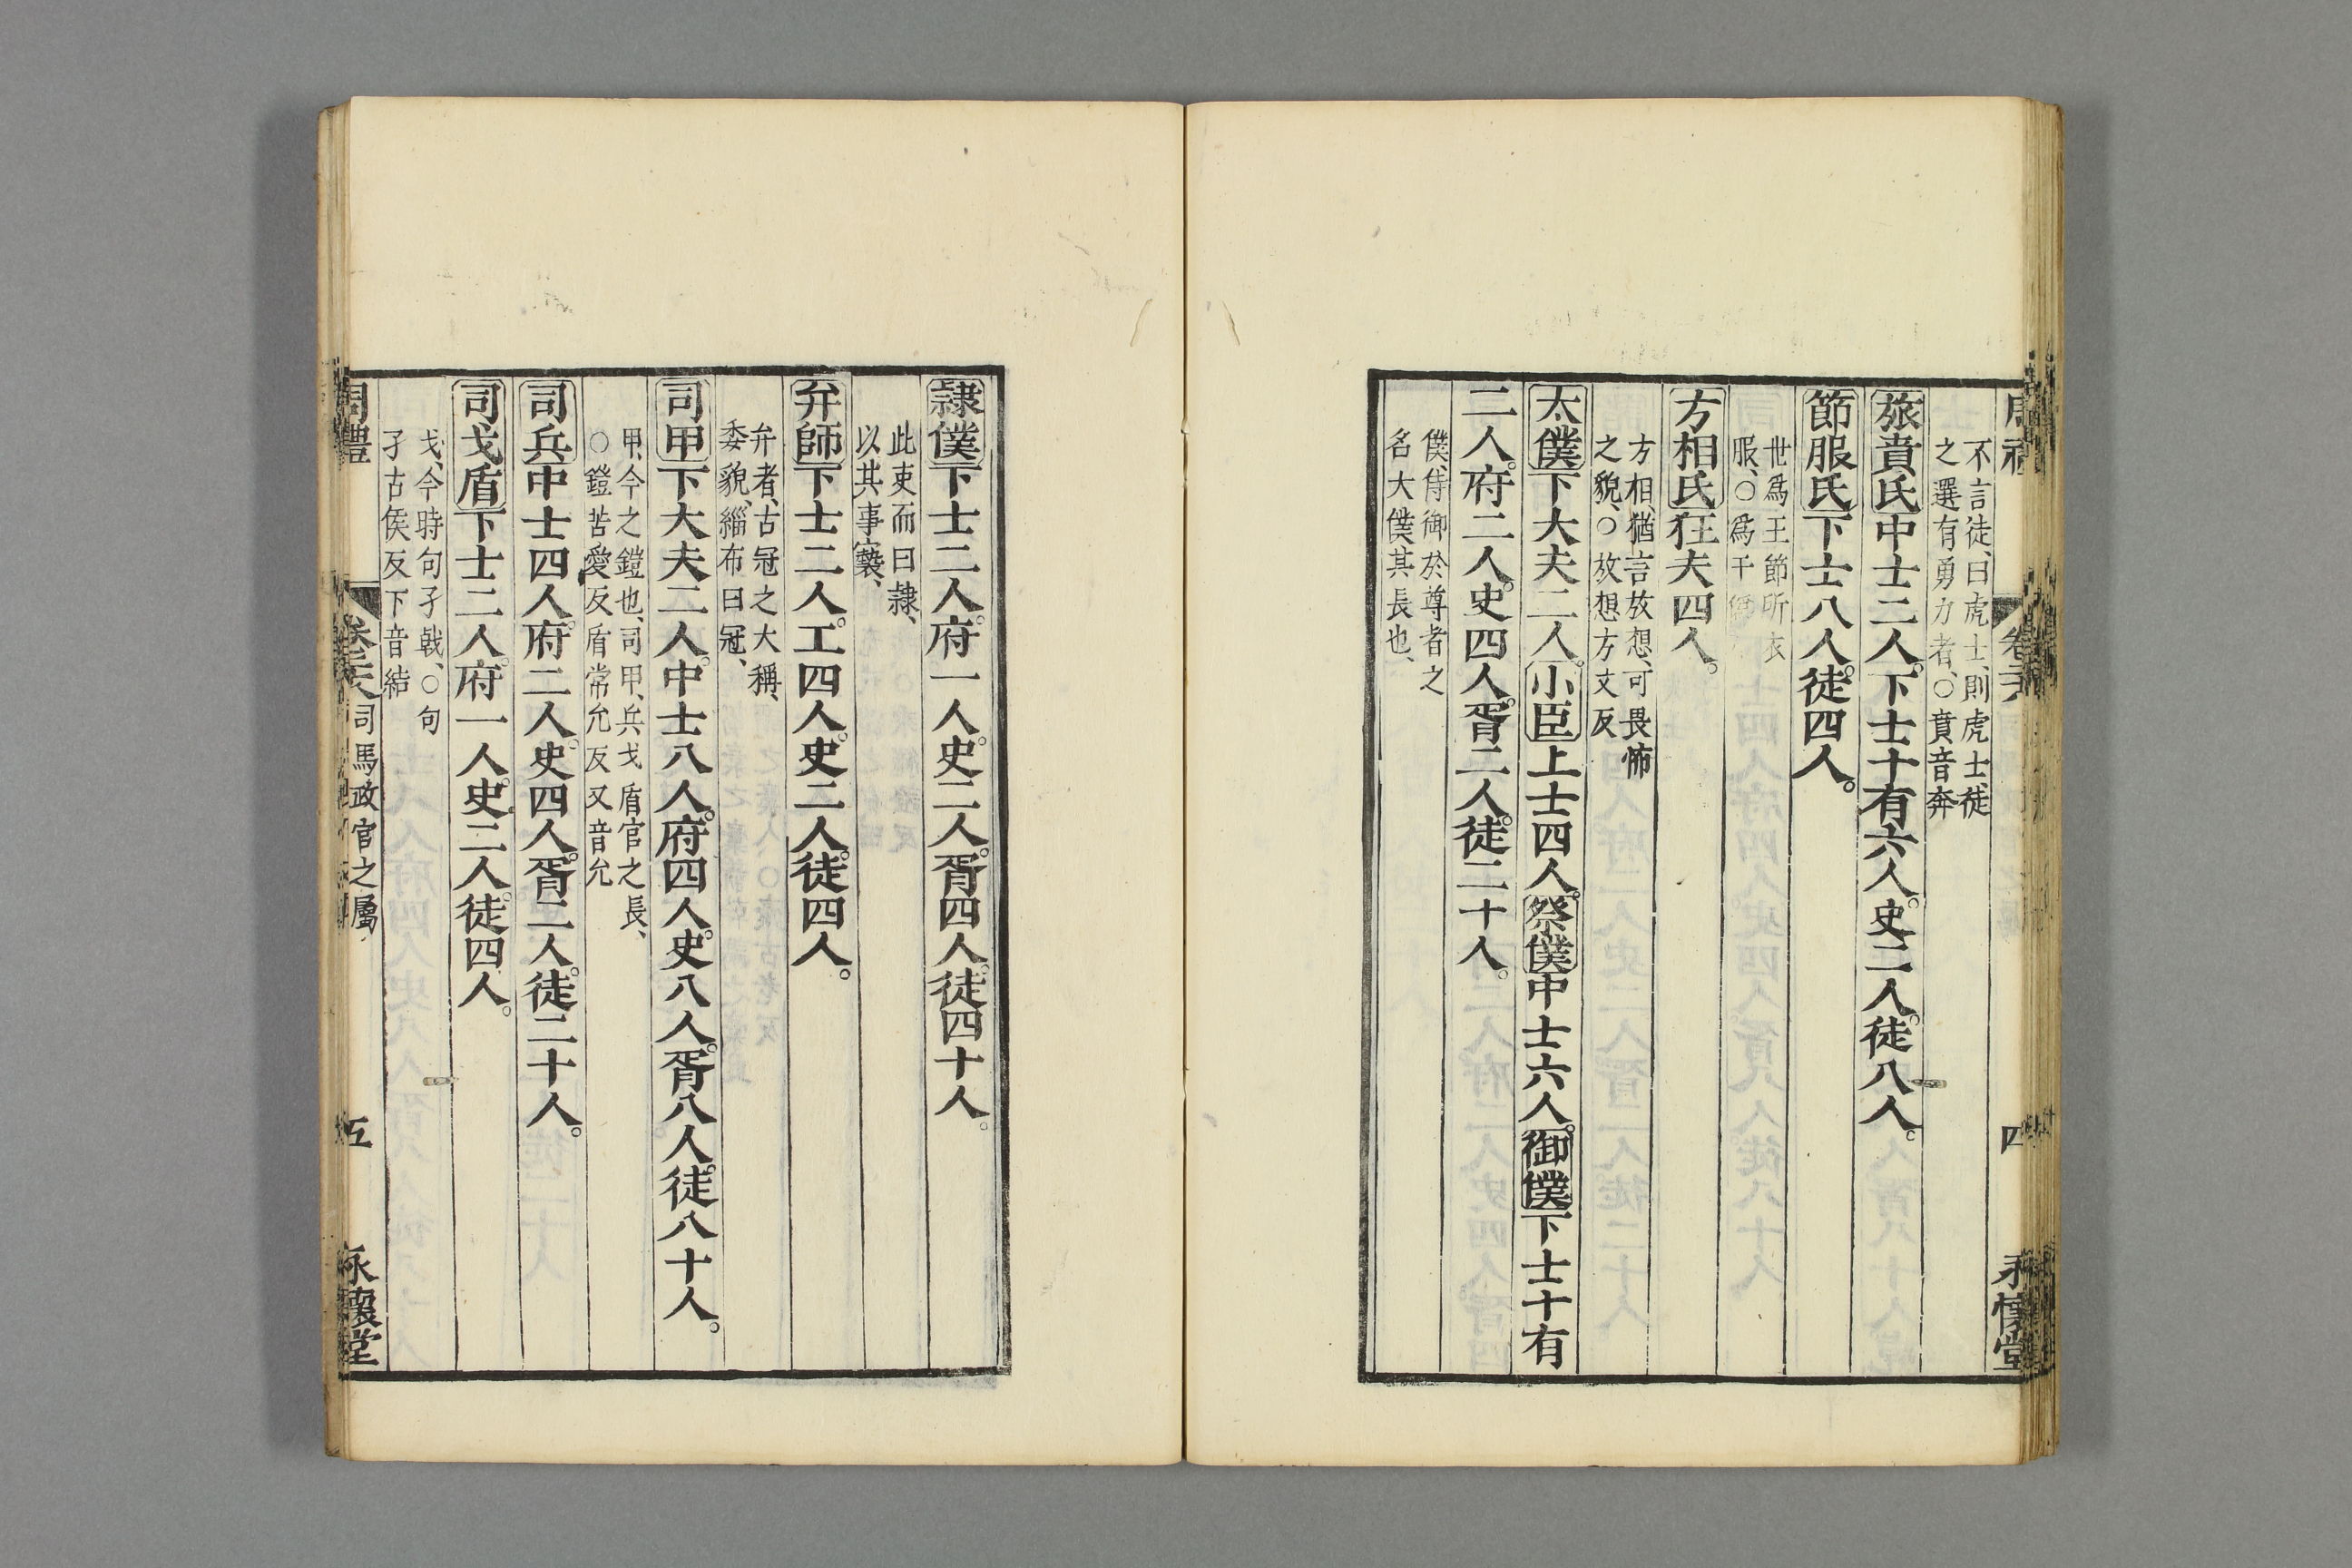 不言徒、曰虎士、則虎士、徒
之選有勇力者、○賁音奔
旅賁氏中士二人。下士十有六人。史二人。徒八人。
節服氏下士八人。徒四人。
世爲王節所衣
服、○爲于
方相氏狂夫四人。
方相、猶言放想、可畏怖
之貌、○放想方丈反
太僕下大夫二人。小臣上士四人。祭僕中士六人。御僕下士十有
二人。府二人。史四人。胥二人。徒二十人。
僕、侍御於尊者之
名大僕其長也、
卷六
四
永懷堂
隷僕下士二人。府一人。史二人。胥四人。徒四十人。
此吏而曰隷、
以其事褻、
弁師下士二人。工四人。史二人。徒四人。
弁者、古冠之大稱、
委貌、緇布曰冠、
司甲下大夫二人。中士八人。府四人。史八人。胥八人。徒八十人。
甲、今之鎧也、司甲、兵戈盾官之長、
○鎧苦愛反盾常允反又音允
司兵中士四人。府二人。史四人。胥二人。徒二十人。
司戈盾下士二人。府一人。史二人。徒四人。
戈、今時句孑戟、○句
孑古侯反下音結
周禮
卷六
司馬政官之屬
五
永懷堂